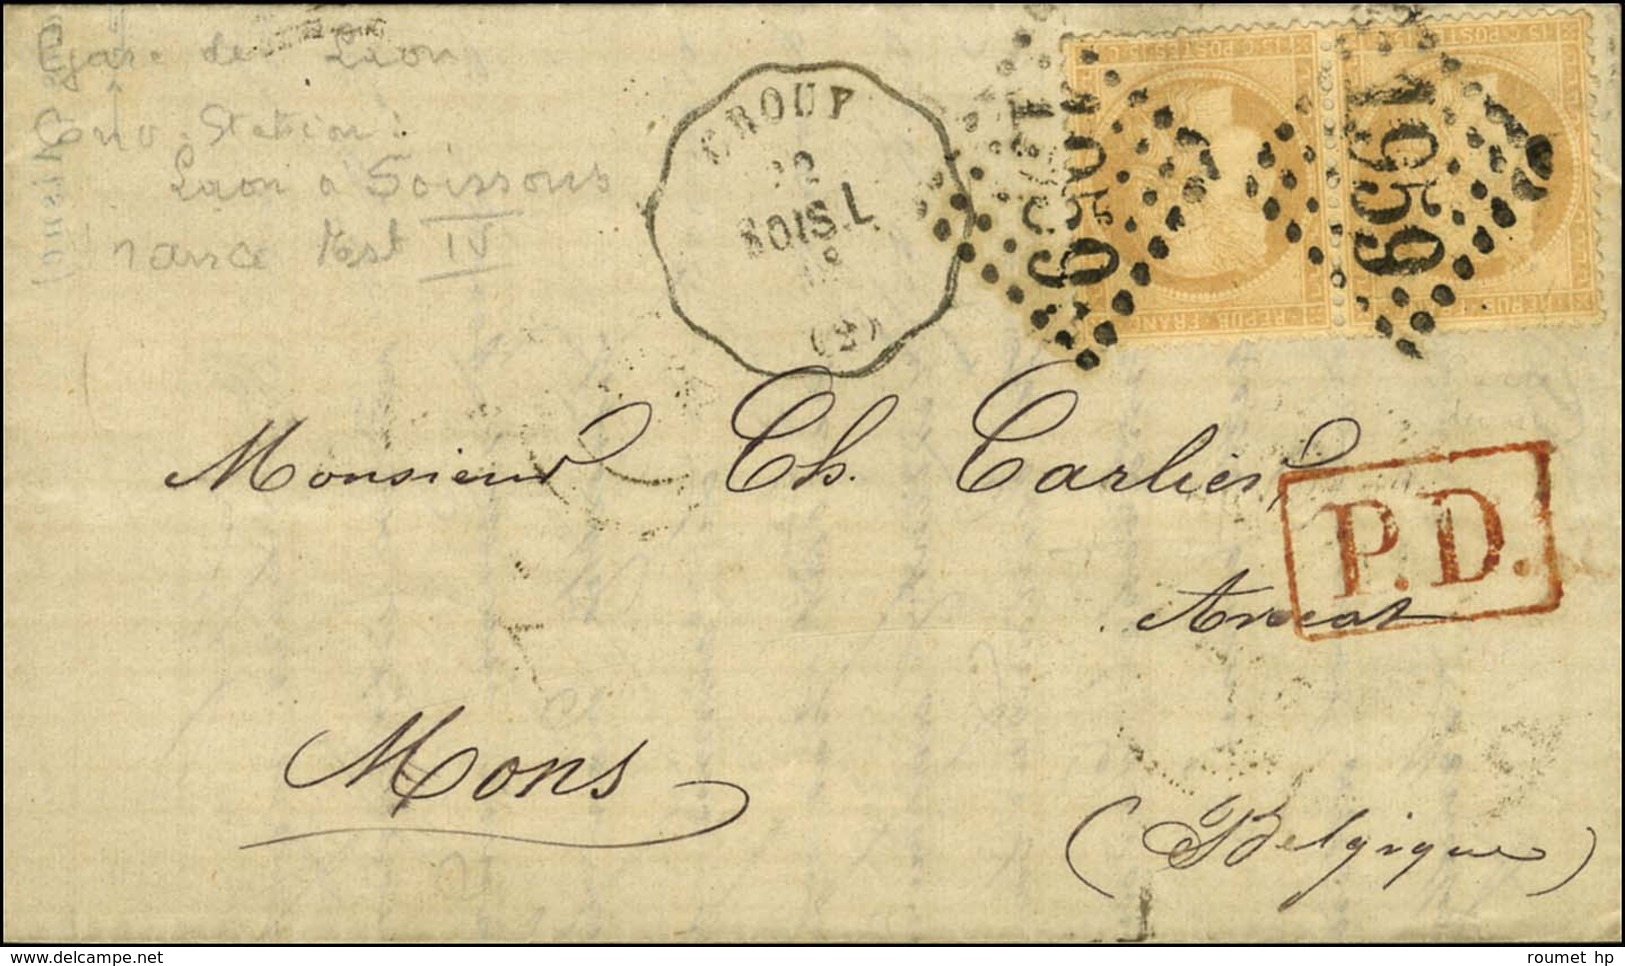 Gare de Laon
Conv. Station :
Laon à Soissons
rance Est IV
CROUY
22
SOIS.L
(2)
15 C. POSTES 15 C.
REPUB. FRANC
1959
Monsieur Ch. Carlier,
P.D.
Avocat
Mons
(Belgique)
delcampe.net
roumet hp